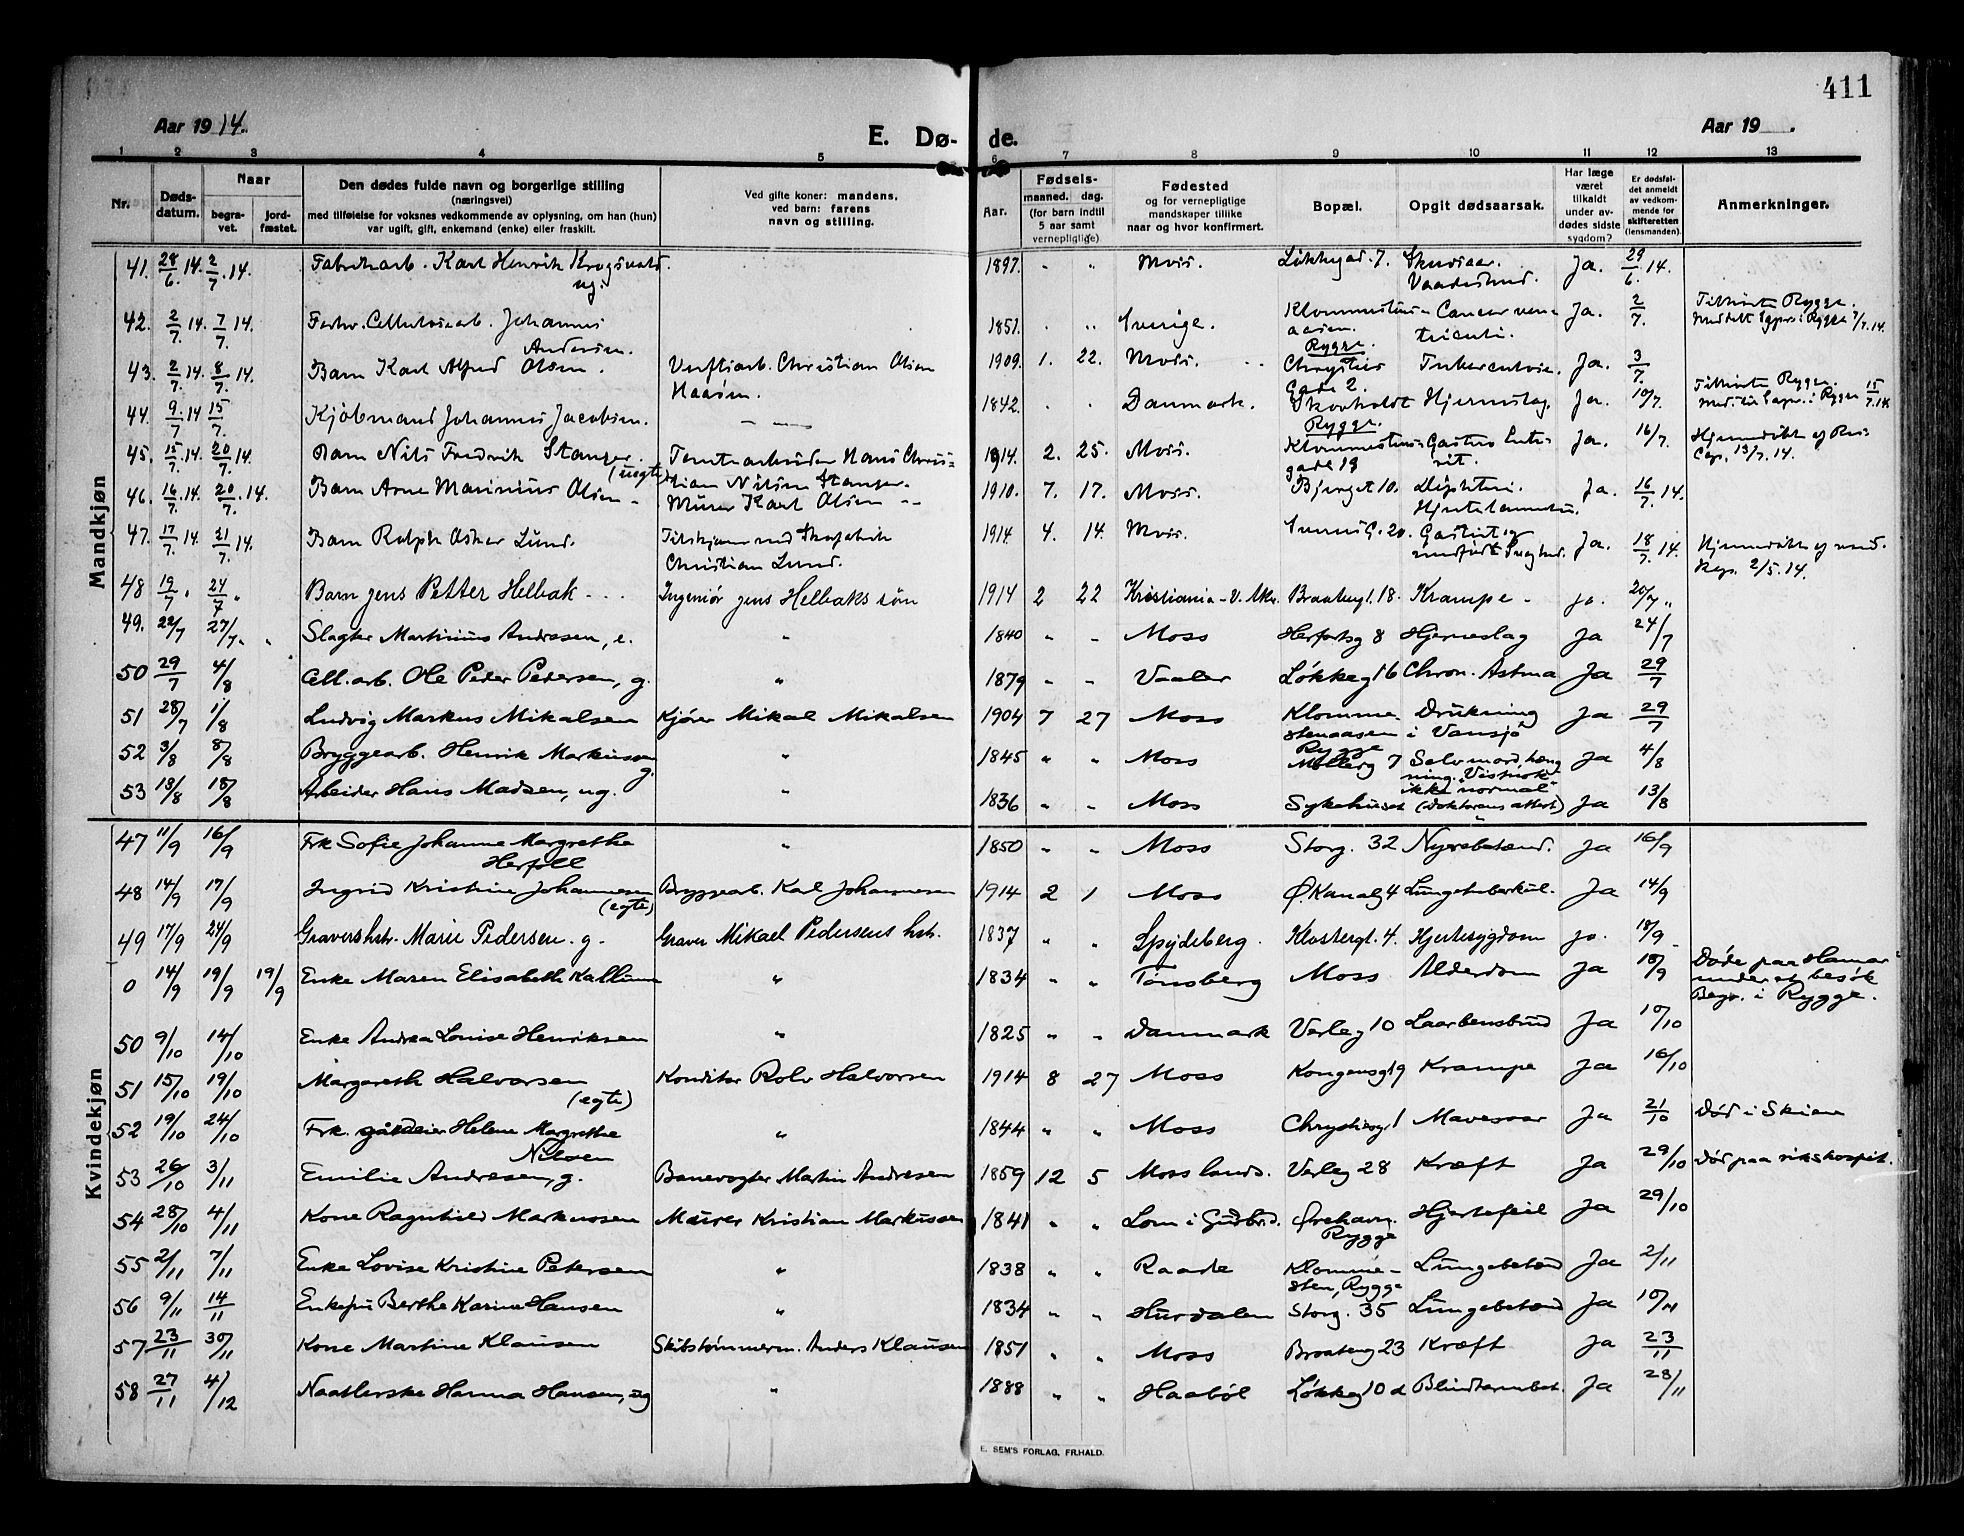 411
Aar 1914.
E. Dø- de.
Aar 19 .
1 2 3 4 5 6 7 8 9 10 11 12 13
Nr. Døds-datum. Naar begra-vet. jord-fæstet. Den dødes fulde navn og borgerlige stilling (næringsvei) med tilføielse for voksnes vedkommende av oplysning, om han (hun) var ugift, gift, enkemand (enke) eller fraskilt. Ved gifte koner: mandens, ved barn: farens navn og stilling. Aar. Fødsels- maaned. dag. (for barn indtil 5 aar samt vernepligtige) Fødested og for vernepligtige mandskaper tillike naar og hvor konfirmert. Bopæl. Opgit dødsaarsak. Har læge været tilkaldt under av-dødes sidste sygdom? Er dødsfal-det anmeldt av vedkom-mende for skifteretten (lensmanden). Anmerkninger.
Mandkjøn
41. 28/6. 14. 2/7. 14. Fabrikarb. Karl Henrik Krogsvold ug. 1897. " " Moss. Løkkegad. 7. Skudsaar. Vaadeskud. Ja. 29/6. 14.
42. 2/7. 14. 7/7. 14. Forhv. Cellulosearb. Johannes Andersen. 1851. " " Sverige. Klommestens-aasen. Rygge. Cancer ven-triculi. Ja. 2/7. Tilhørte Rygge.
43. 2/7. 14. 8/7. 14. Barn Karl Alfred Olsen. Verftsarb. Christian Olsen Haasen. 1909. 1. 22. Moss. Chrysties Gade 2. Tuberculose. Ja. 3/7.
44. 9/7. 14 15/7. Kjøbmand Johannes Jacobsen. — — 1842. " " Danmark. Skovholdt Rygge. Hjerneslag. Ja. 10/7. Tilhørte Rygge. 15/7. 14
45. 15/7. 14. 20/7. 14. Barn Nils Fredrik Stanger. (uegte) Tomtearbeider Hans Chris-tian Nilsen Stanger. 1914. 2. 25. Moss. Klommestens-gade 19 Gastro Ente-rit. Ja. 16/7. Hjemmedøbt 13/7. 14.
46. 16/7. 14. 20/7. 14. Barn Arne Marinius Olsen - Murer Karl Olsen -- 1910. 7. 17. Moss. Bjerget 10. Difteri. Hjertelammelse. Ja. 16/7. 14.
47. 17/7. 14. 21/7. 14. Barn Ralph Oskar Lund. Tilskjærer ved Skofabrik Christian Lund. 1914. 4. 14. Moss. G. 20. Gastrit og medfødt Svaghed. Ja. 18/7. 14. Hjemmedøbt 2/5. 14.
48 19/7 " 24/7 " Barn Jens Petter Helbak - - - Ingeniør Jens Helbaks søn 1914 2 22 Kristiania - V. Aker. Braatengt. 18. Krampe - Ja. 20/7 "
49. 22/7 27/7. " Slagter Martinius Andresen, e. " 1840 " " Moss Herfortsg 8 Hjerneslag Ja 24/7
50 29/7 4/8 Cell. arb. Ole Peder Pedersen, g. " 1879 " " Vaaler Løkkeg 16 Chron. Astma Ja 29/7
51 28/7 1/8 Ludvig Markus Mikalsen Kjører Mikal Mikalsen 1904 7 27 Moss Klomme-stenaasen Rygge Drukning i Vansjø Ja 29/7
52 3/8 8/8 Bryggearb. Henrik Markussen g. " 1845 " " Moss Møllerg 7 Selvmord, hæng ning. "Vistnok ikke normal" (doktorens attest) Ja 4/8
53 13/8 18/8 Arbeider Hans Madsen, ug. " 1836 " " Moss Sykehuset " Ja 13/8
Kvindekjøn
47 11/9 16/9 Frk Sofie Johanne Margrethe Herföll " 1850 " " Moss Storg. 32 Nyrebetænd. Ja 16/9
48 14/9 17/9 Ingrid Kristine Johannesen (egte) Bryggearb. Karl Johannesen 1914 2 1 Moss Ø. Kanalg 4 Lungetuberkul. Ja 14/9
49 17/9 24/9 Gravershstr. Marie Pedersen. g. Graver Mikael Pedersens hstr. 1837 " " Spydeberg. Klostergt. 4. Hjertesygdom Ja. 18/9
0 14/9 19/9 19/9 Enke Maren Elisabeth Kallum " 1834 " " Tønsberg Moss Alderdom Ja 18/9 Døde paa Hamar under et besøk Begr. i Rygge.
50 9/10 14/10 Enke Andrea Louise Henriksen " 1825 " " Danmark Verleg 10 Laarbensbrud Ja 10/10
51 15/10 19/10 Margareth Halvorsen (egte) Konditor Rolv Halvorsen 1914 8 27 Moss Kongensg 19 Krampe Ja 16/10
52 19/10 24/10 Frk. gårdeier Helene Margrethe Nilsen " 1844 " " Moss Chrystiesg 1 Mavesaar Ja 21/10 Død i Skien
53 26/10 3/11 Emilie Andresen, g. Banevogter Martin Andresen 1859 12 5 Moss lands. Verleg 28 Kræft Ja 29/10 Død paa rikshospit.
54 28/10 4/11 Kone Ragnhild Markussen Murer Kristian Markussen 1841 " " Lom i Gudbrd. Ørehavn. Rygge Hjertefeil Ja 29/10
55 2/11 7/11 Enke Lovise Kristine Petersen " 1838 " " Raade Klomme-sten, Rygge Lungebetænd Ja 2/11
56 9/11 14/11 Enkefru Berthe Karine Hansen " 1834 " " Hurdalen Storg. 35 Lungebetænd Ja 10/11
57 23/11 30/11 Kone Martine Klausen Skibstømmerm. Anders Klausen 1851 " " Moss Braateng 23 Kræft Ja 23/11
58 27/11 4/12 Naatlerske Hanna Hansen, ug " 1888 " " Haabøl Løkkeg 10 d Blindtarmsbet. Ja 28/11
E. SEM'S FORLAG, FR.HALD.